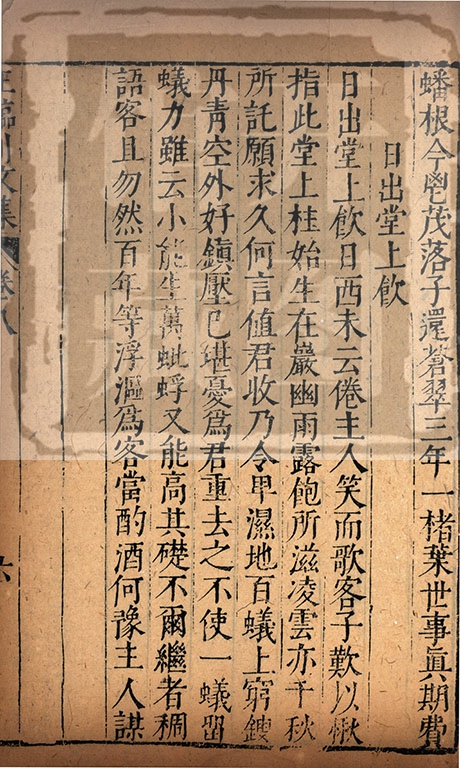 蟠根今鬯茂落子還蒼翠三年一楮葉世事眞期費
日出堂上飮
日出堂上飮日西未云倦主人笑而歌客子歎以愀
指此堂上桂始生在巖幽雨露飽所滋凌雲亦千秋
所託願求久何言値君收乃令卑濕地百蟻上窮鎪
丹靑空外好鎭壓已堪憂爲君重去之不使一蟻留
蟻力雖云小能生萬蚍蜉又能高其礎不爾繼者稠
語客且勿然百年等浮漚爲客當酌酒何豫主人謀
王臨川文集 卷八
六